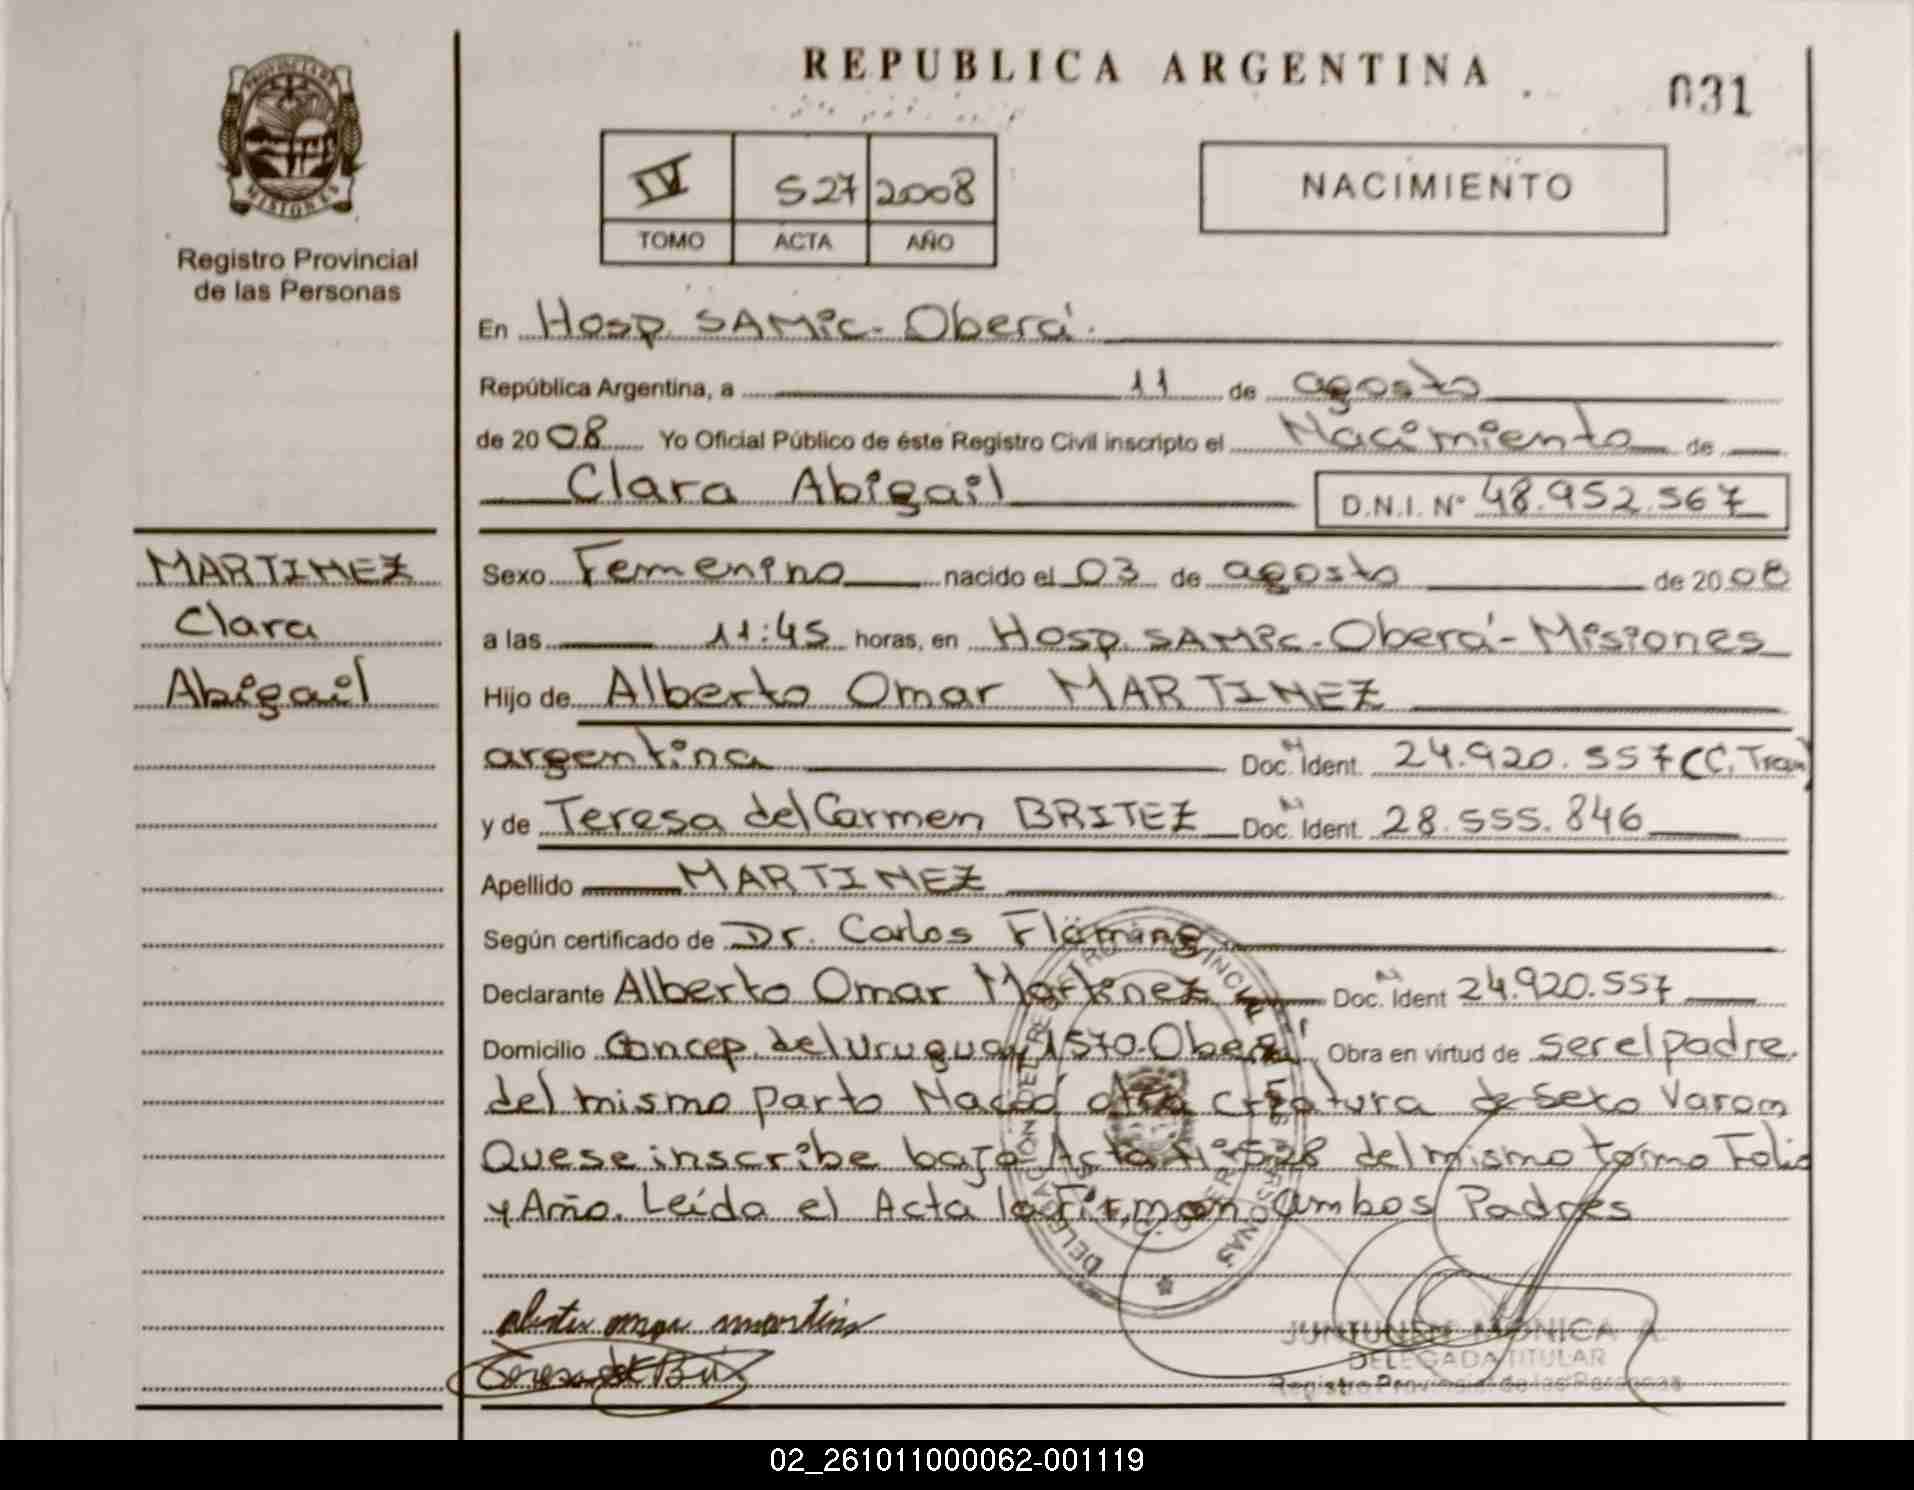 REPUBLICA ARGENTINA
031
PROVINCIA DE
MISIONES
Registro Provincial
de las Personas
IV 527 2008
TOMO ACTA AÑO
NACIMIENTO
En Hosp. SAMic - Oberá.
República Argentina, a 11 de agosto
de 2008 Yo Oficial Público de éste Registro Civil inscripto el Nacimiento de
Clara Abigail D.N.I. Nº 48.952.567
MARTINEZ
Clara
Abigail
Sexo Femenino nacido el 03 de agosto de 2008
a las 11:45 horas, en Hosp. SAMic - Oberá - Misiones
Hijo de Alberto Omar MARTINEZ
argentina Doc. Ident. 24.920.557 (C. Tram)
y de Teresa del Carmen BRITEZ Doc. Ident. 28.555.846
Apellido MARTINEZ
Según certificado de Dr. Carlos Fleming
Declarante Alberto Omar Martinez Doc. Ident 24.920.557
Domicilio Concep. del Uruguay 1570. Oberá Obra en virtud de ser el padre.
del mismo parto Nació otra criatura de sexo Varon
Que se inscribe bajo Acta Nº 528 del mismo tomo Folio
y Año. Leída el Acta la Firman ambos Padres
DELEGACION DEL REGISTRO PROVINCIAL DE LAS PERSONAS
MONICA A.
DELEGADA TITULAR
Registro Provincial de las Personas
02_261011000062-001119